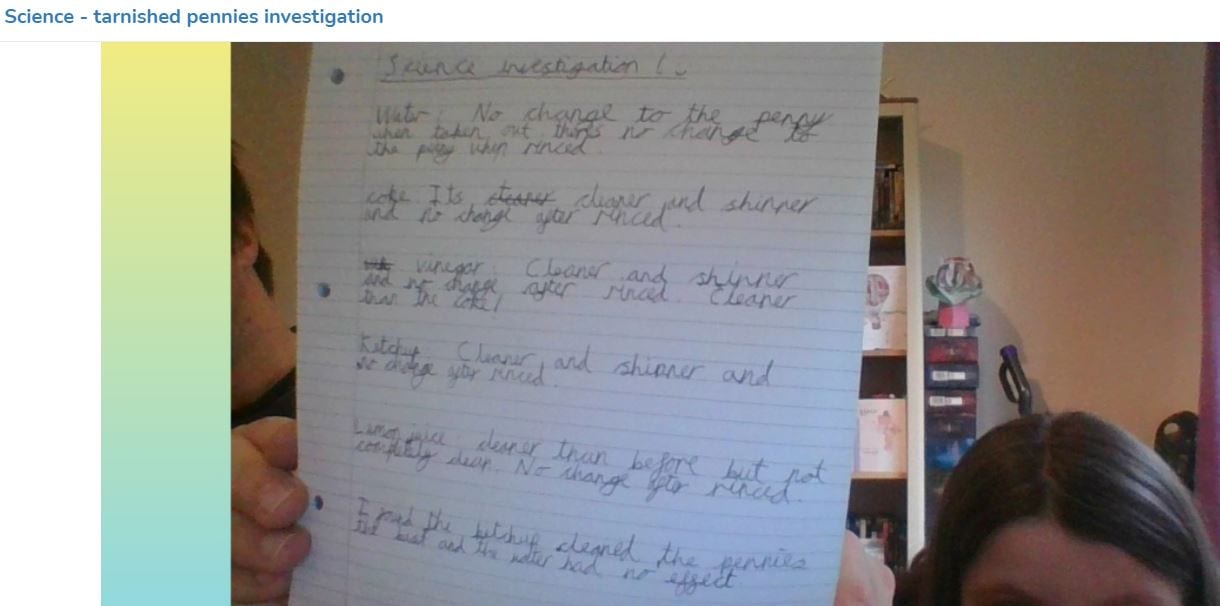 Science - tarnished pennies investigation
Science investigation!
Water: No change to the penny
when taken out there's no change to
the penny when rinced.
coke Its cleaner cleaner and shinner
and no change after rinced.
vinegar: Cleaner and shinner
and no change after rinced. Cleaner
than the coke!
Ketchup: Cleaner and shinner and
no change after rinced.
Lemon juice: cleaner than before but not
completely clean. No change after rinced.
I found the ketchup cleaned the pennies
the best and the water had no effect